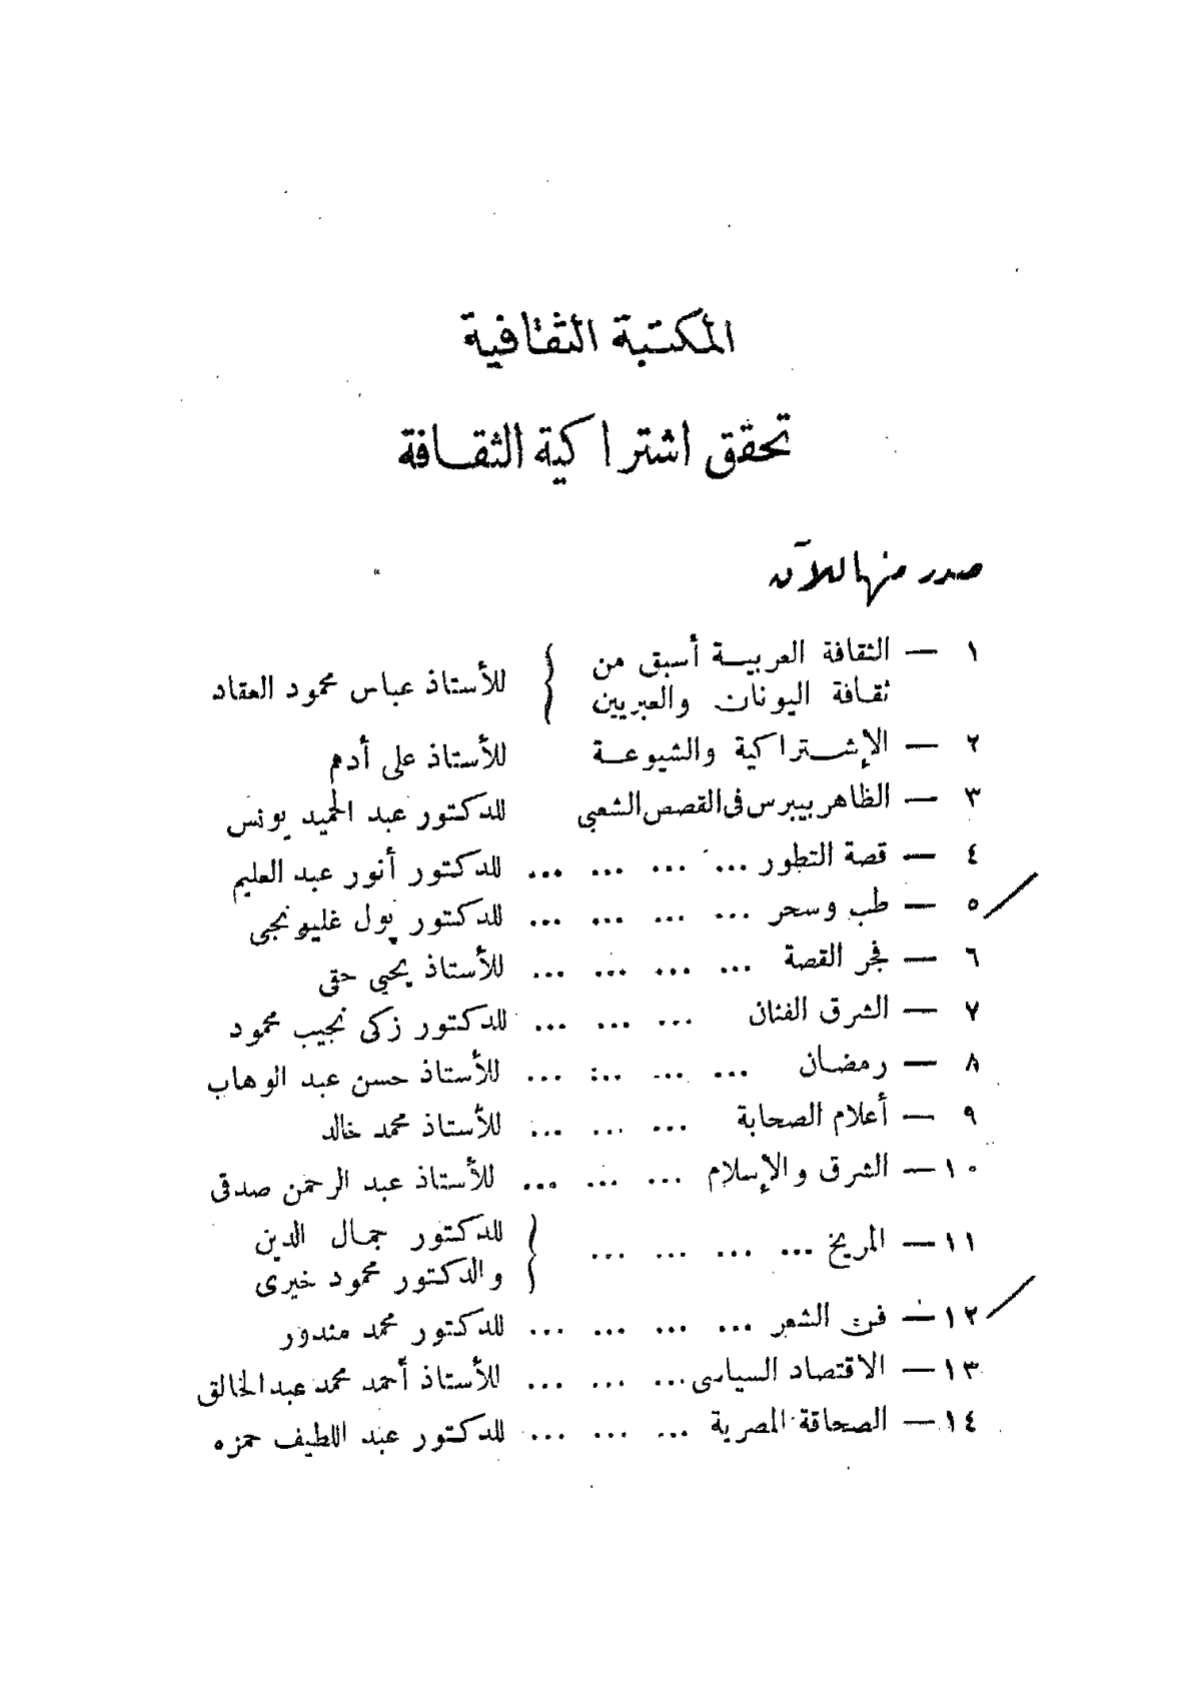 المكتبة الثقافية
تحقق اشتراكية الثقافة
صدر منها للآن
١ — الثقافة العربية أسبق من ثقافة اليونان والعبريين } للأستاذ عباس محمود العقاد
٢ — الإشتراكية والشيوعية للأستاذ على أدهم
٣ — الظاهر بيبرس فى القصص الشعبى للدكتور عبد الحميد يونس
٤ — قصة التطور ... ... ... ... للدكتور أنور عبد العليم
٥ — طب وسحر ... ... ... ... للدكتور پول غليونجى
٦ — فجر القصة ... ... ... ... للأستاذ يحيى حقى
٧ — الشرق الفنان ... ... ... للدكتور زكى نجيب محمود
٨ — رمضان ... ... ... ... للأستاذ حسن عبد الوهاب
٩ — أعلام الصحابة ... ... ... للأستاذ محمد خالد
١٠ — الشرق والإسلام ... ... ... للأستاذ عبد الرحمن صدقى
١١ — المريخ ... ... ... ... } للدكتور جمال الدين والدكتور محمود خيرى
١٢ — فن الشعر ... ... ... ... للدكتور محمد مندور
١٣ — الاقتصاد السياسى ... ... ... للأستاذ أحمد محمد عبد الخالق
١٤ — الصحافة المصرية ... ... ... للدكتور عبد اللطيف حمزه